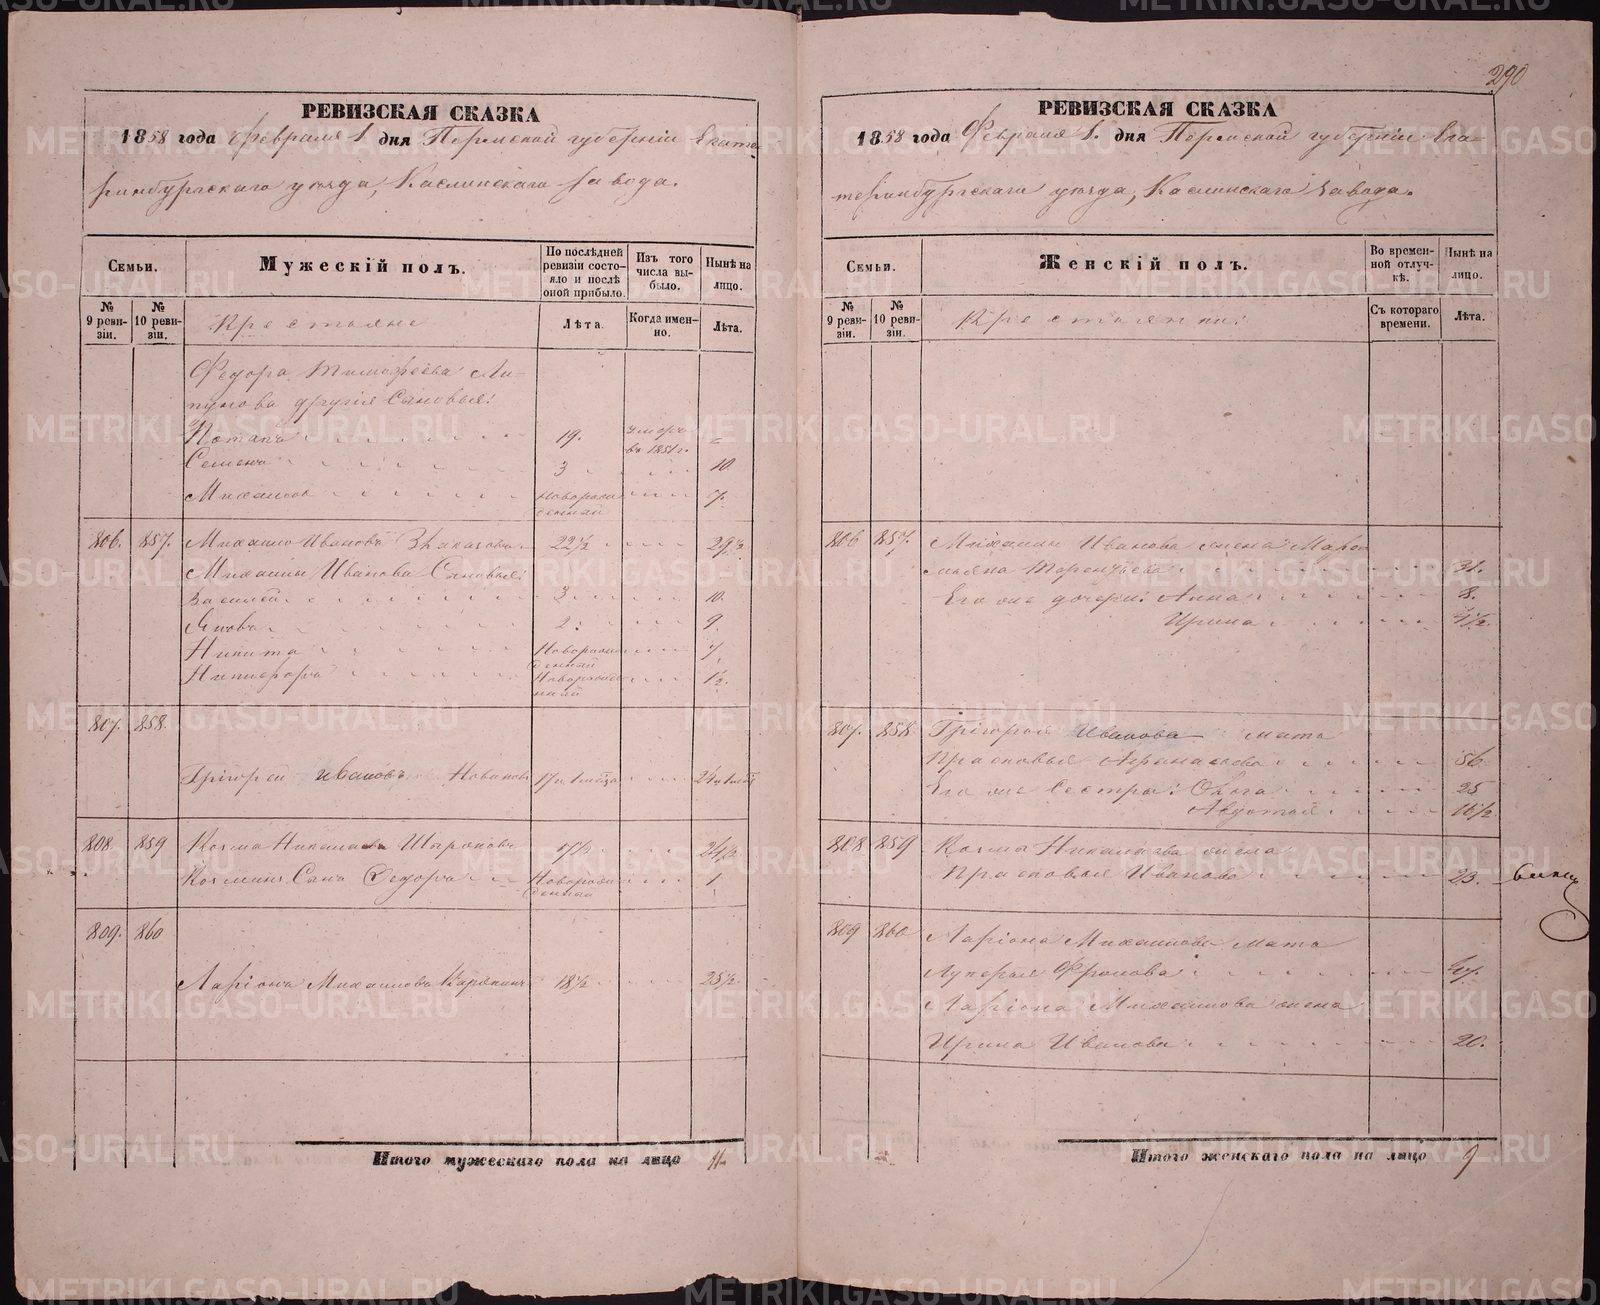 290
РЕВИЗСКАЯ СКАЗКА
1858 года Февраля 1 дня Пермской губерніи Екате
ринбургскаго уѣзда, Каслинскаго завода.
Семьи.
Мужескій полъ.
По послѣдней ревизіи состояло и послѣ оной прибыло.
Изъ того числа выбыло.
Нынѣ на лицо.
№ 9 ревизіи.
№ 10 ревизіи.
Крестьяне
Лѣта.
Когда именно.
Лѣта.
Федора Тимофеева Ли-
пунова другія Сыновья:
Потапъ 19. умеръ въ 1851 г. =
Семенъ 3 10.
Михаило новорожденный 7.
806. 857. Михаило Ивановъ 22½ 29½
Михаилы Иванова Сыновья:
Василей 3 10.
Яковъ 2 9.
Никита Новорожденный 7
Никифоръ Новорожденный 1½.
807. 858.
Григорей Ивановъ 17 и 1 мѣсяца
808. 859 Козма Николаевъ 17½ 24½
Козминъ Сынъ Федоръ Новорожденный 1
809. 860
Ларіонъ Михаиловъ 18½ 25½
Итого мужескаго пола на лицо 11.
РЕВИЗСКАЯ СКАЗКА
1858 года Февраля 1. дня Пермской губерніи Ека-
теринбургскаго уѣзда, Каслинскаго завода.
Семьи.
Женскій полъ.
Во временной отлучкѣ.
Нынѣ на лицо.
№ 9 ревизіи.
№ 10 ревизіи.
Крестьянки:
Съ котораго времени.
Лѣта.
806 857. Михаилы Иванова жена
Терентьева 31.
Его же дочери: Анна 8.
Ирина 4½.
807. 858 Григорья Иванова мать
Прасковья Афанасьева 56
Его же Сестры: Ольга 25
Авдотья 16½
808 859 Козмы Николаева жена
Прасковья Иванова 23.
809 860 Ларіона Михаилова мать
Лукерья Фролова
Ларіона Михаилова жена
Ирина Иванова 20.
Итого женскаго пола на лицо 9
METRIKI.GASO-URAL.RU